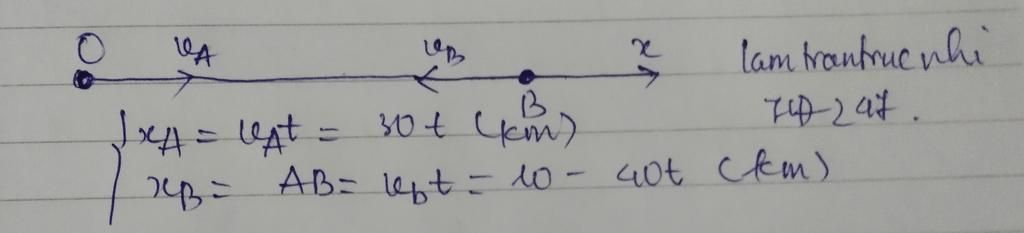 O v_A v_B x lamtrantrucnhi
B 247.
x_A = v_At = 30t (km)
x_B = AB = v_bt = 10 - 40t (km)